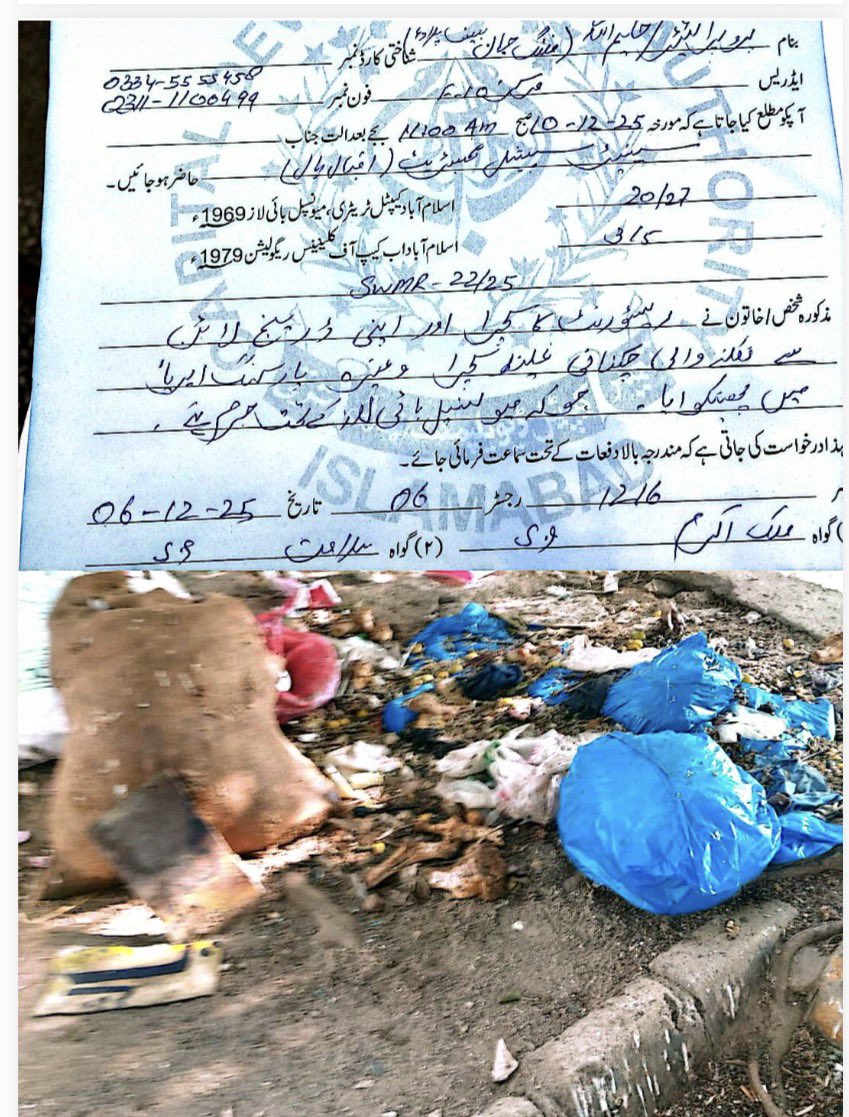 بنام پروپرائیٹر / حلیم اللہ (ملنگ جان بیف پلاؤ) شناختی کارڈ نمبر
ایڈریس مرکز F-10 فون نمبر 0334-5555458
0311-1100499
آپکو مطلع کیا جاتا ہے کہ مورخہ 10-12-25 صبح 11:00 Am بجے بعدالت جناب
سینئر سپیشل مجسٹریٹ (اقبال ہال) حاضر ہو جائیں۔
20/27 اسلام آباد کیپٹل ٹریٹری، میونسپل بائی لاز 1969ء
3/5 اسلام آباد اب کیپ آف کلینینس ریگولیشن 1979ء
SWMR-22/25
مذکورہ شخص / خاتون نے ریسٹورنٹ کا کچرا اور اپنی ڈرینج لائن
سے نکلنے والی چکنائی غلیظ کچرا وغیرہ پارکنگ ایریا
میں پھینکوایا۔ جو کہ میونسپل بائی لاز کے تحت جرم ہے۔
ہذا درخواست کی جاتی ہے کہ مندرجہ بالا دفعات کے تحت سماعت فرمائی جائے۔
1216 رجسٹر 06 تاریخ 06-12-25
گواہ ملک اکرم (۲) گواہ سلامت
CAPITAL DEV
UTHORITY
ISLAMABAD